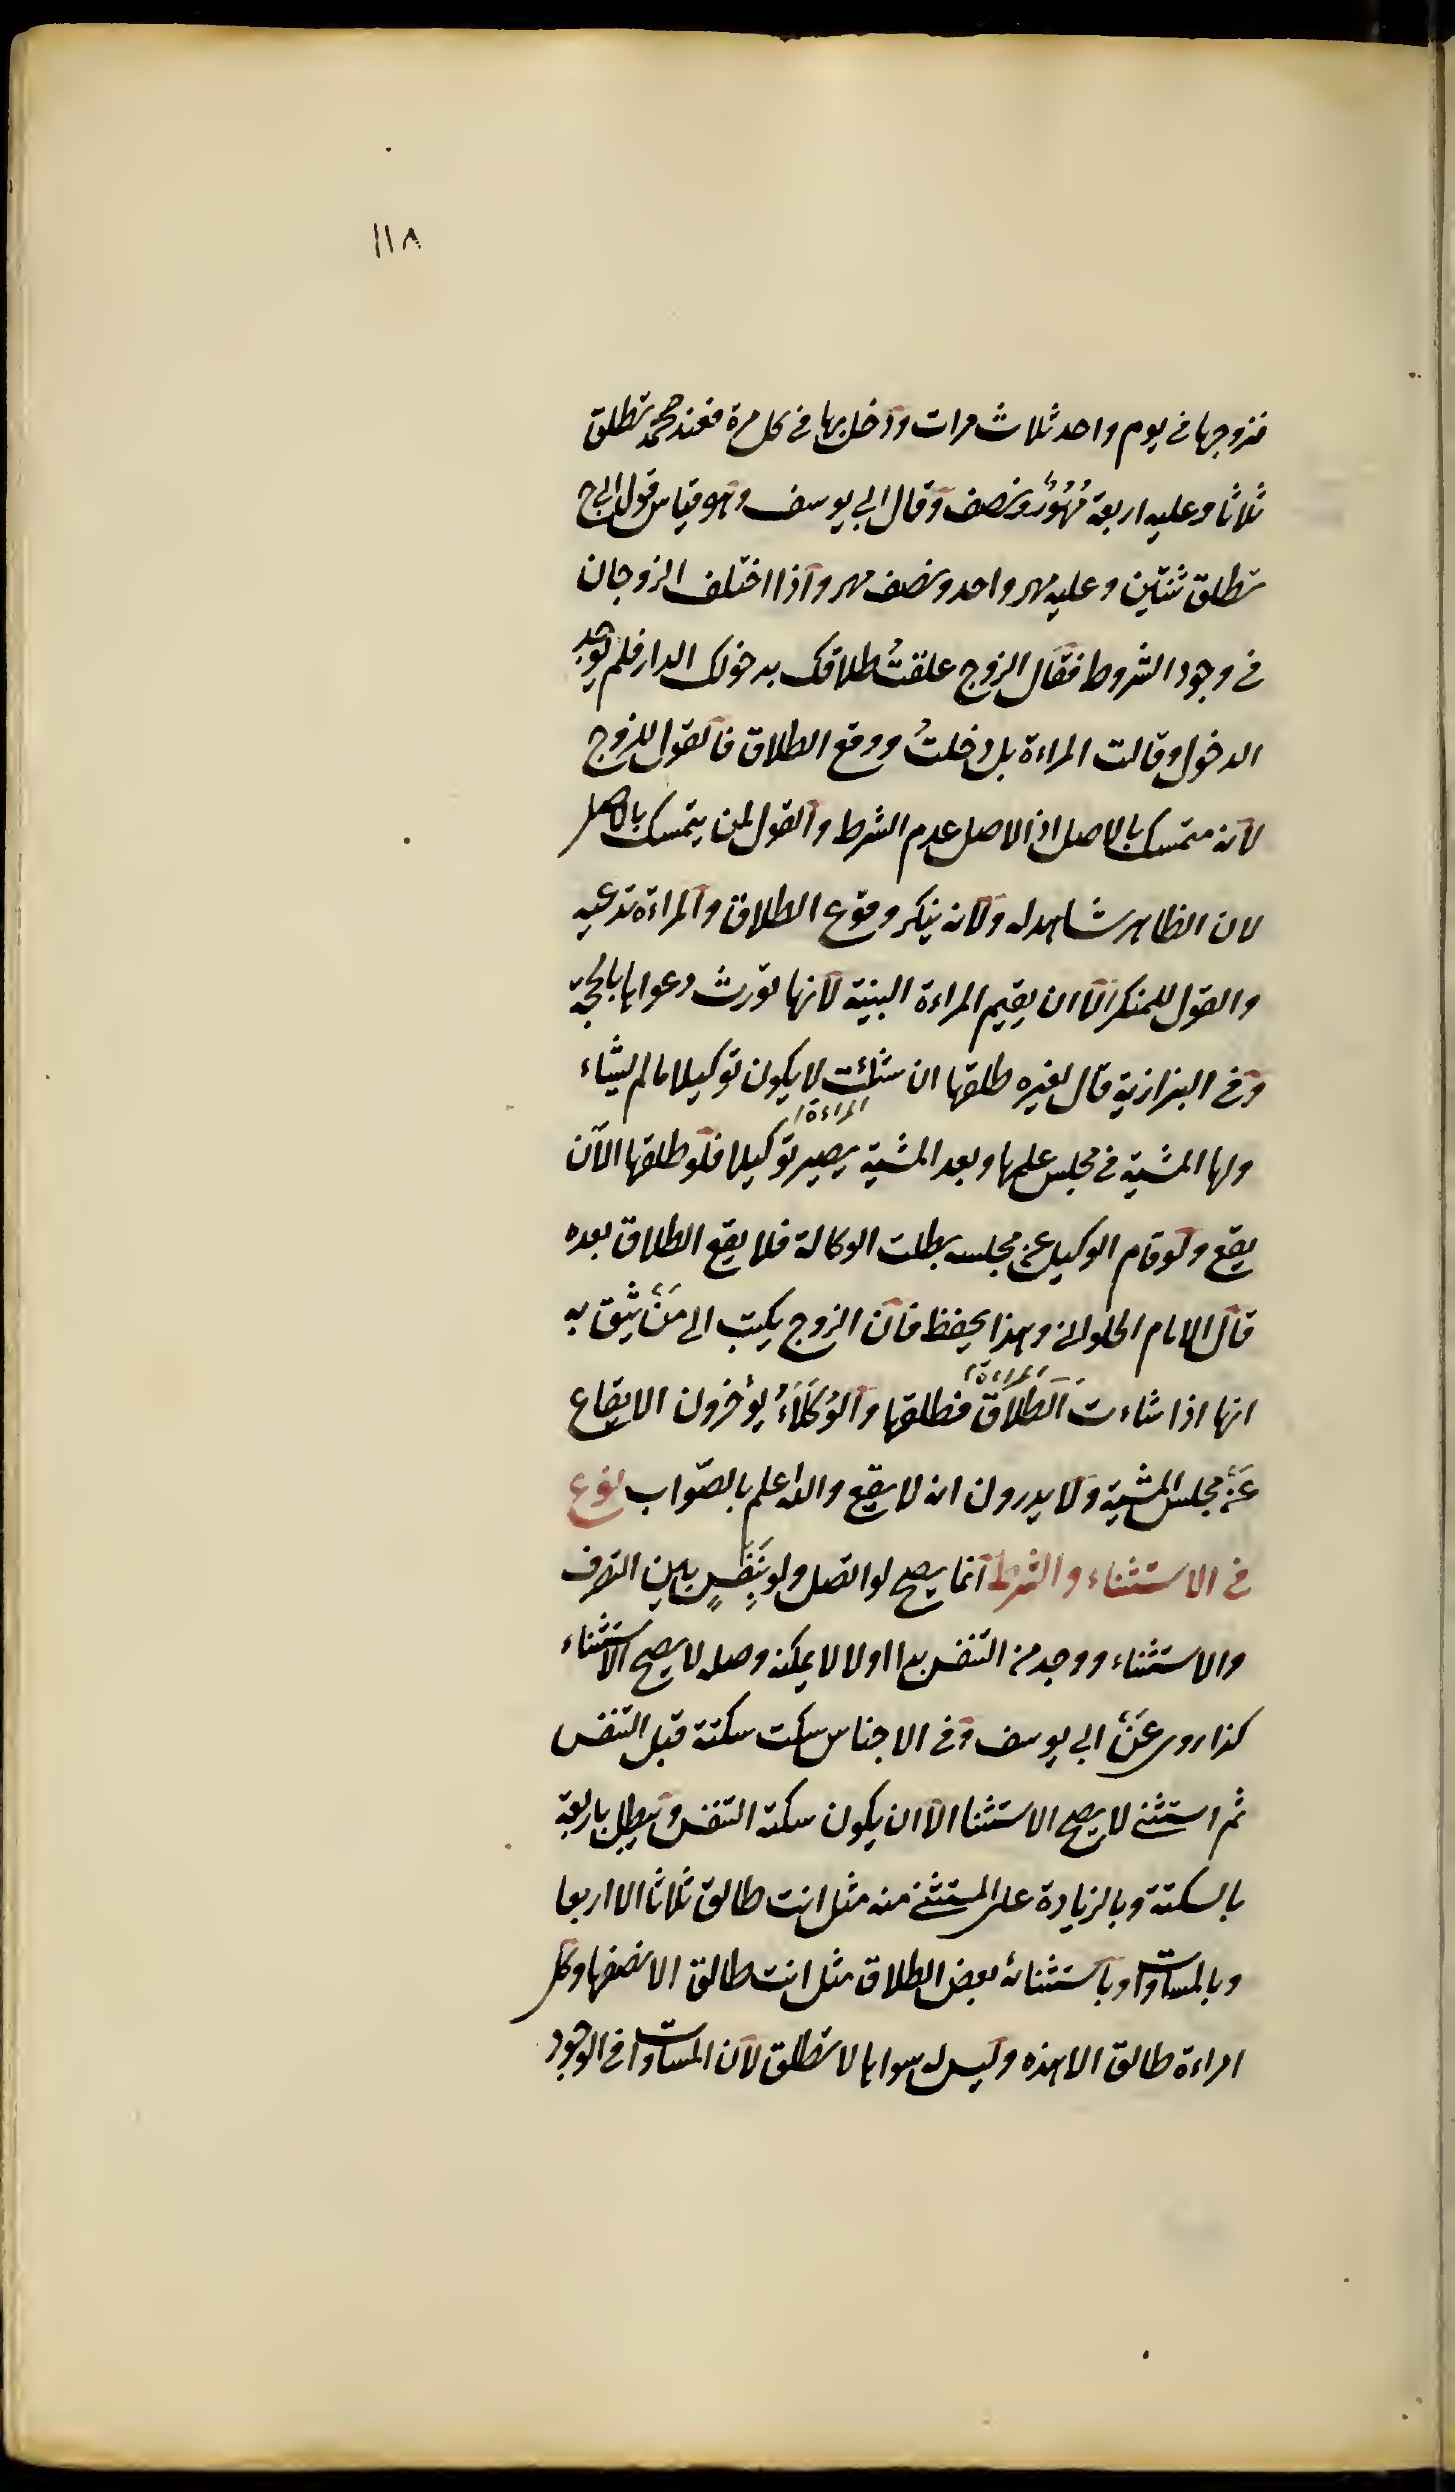 ١١٨
فتزوجها فى يوم واحد ثلاث مرات ودخل بها فى كل مرة فعند محمد تطلق
ثلاثا وعليه اربعة مُهُوُر ونصف وقال ابى يوسف وهو قياس قول ابى ح
تطلق ثنتين وعليه مهر واحد ونصف مهر واذا اختلف الزوجان
فى وجود الشروط فقال الزوج علقتُ طلاقك بدخولك الدار فلم يوجد
الدخول وقالت المراءة بل دخلتُ ووقع الطلاق فالقول للزوج
لانه متمسك بالاصل اذ الاصل عدم الشرط والقول لمن يتمسك بالاصل
لان الظاهر شاهد له ولانه ينكر وقوع الطلاق والمراءة تدعيه
والقول للمنكر الا ان يقيم المراءة البينة لانها تورث دعواها بالحجة
وفى البزازية قال لغيره طلقها ان شئت لا يكون توكيلا مالم يشاء
المراءة
ولها المشية فى مجلس علمها وبعد المشية يصير توكيلا فلو طلقها الآن
يقع ولو قام الوكيل عن مجلسه بطلت الوكالة فلا يقع الطلاق بعده
قال الامام الحلوانى وهذا يحفظ فان الزوج يكتب الى مَنْ يثق به
المراءة
انها اذا شاءت الطلاق فطلقها والوُكَلَاءُ يؤخرون الايقاع
عَنْ مجلس المشية ولا يدرون انه لا يقع والله اعلم بالصّواب نوع
فى الاستثناء والشرط انما يصح لو اتصل ولو بِنَفَسٍ بين التصرف
والاستثناء ووجد من التنفس بدا اولا لا يمكنه وصله لا يصح الاستثناء
كذا روى عَنْ ابى يوسف وفى الاجناس سكت سكتة قبل التنفس
ثم استثنى لا يصح الاستثنا الا ان يكون سكتة التنفس ويبطل باربعة
بالسكتة وبالزيادة على المستثنى منه مثل انت طالق ثلاثا الا اربعا
وبالمساوات وباستثنائه بعض الطلاق مثل انت طالق الا نصفها وكل
امراءة طالق الا هذه وليس له سواها لا تطلق لان المساوات فى الوجود